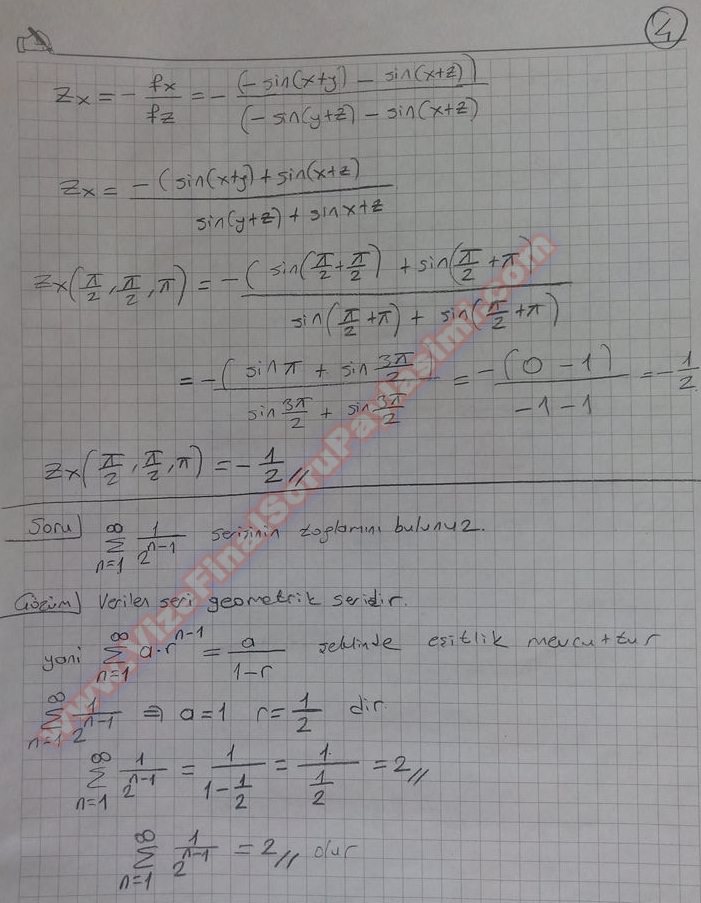 4
Zx = - fx/fz = - (-sin(x+y) - sin(x+z)) / (-sin(y+z) - sin(x+z))
Zx = -(sin(x+y) + sin(x+z) / sin(y+z) + sinx+z
Zx(π/2, π/2, π) = -(sin(π/2+π/2) + sin(π/2+π) / sin(π/2+π) + sin(π/2+π)
= -(sinπ + sin 3π/2) / sin 3π/2 + sin 3π/2 = -(0-1) / -1-1 = -1/2
Zx(π/2, π/2, π) = -1/2 //
Soru) ∞ Σ n=1 1/2^(n-1) serisinin toplamını bulunuz.
Çözüm) Verilen seri geometrik seridir.
yani ∞ Σ n=1 a·r^(n-1) = a/1-r şeklinde eşitlik mevcuttur
∞ Σ n=1 1/2^(n-1) ⇒ a=1 r=1/2 dir.
∞ Σ n=1 1/2^(n-1) = 1/(1-1/2) = 1/(1/2) = 2 //
∞ Σ n=1 1/2^(n-1) = 2 // olur
www.VizeFinalSoruPaylasimi.com